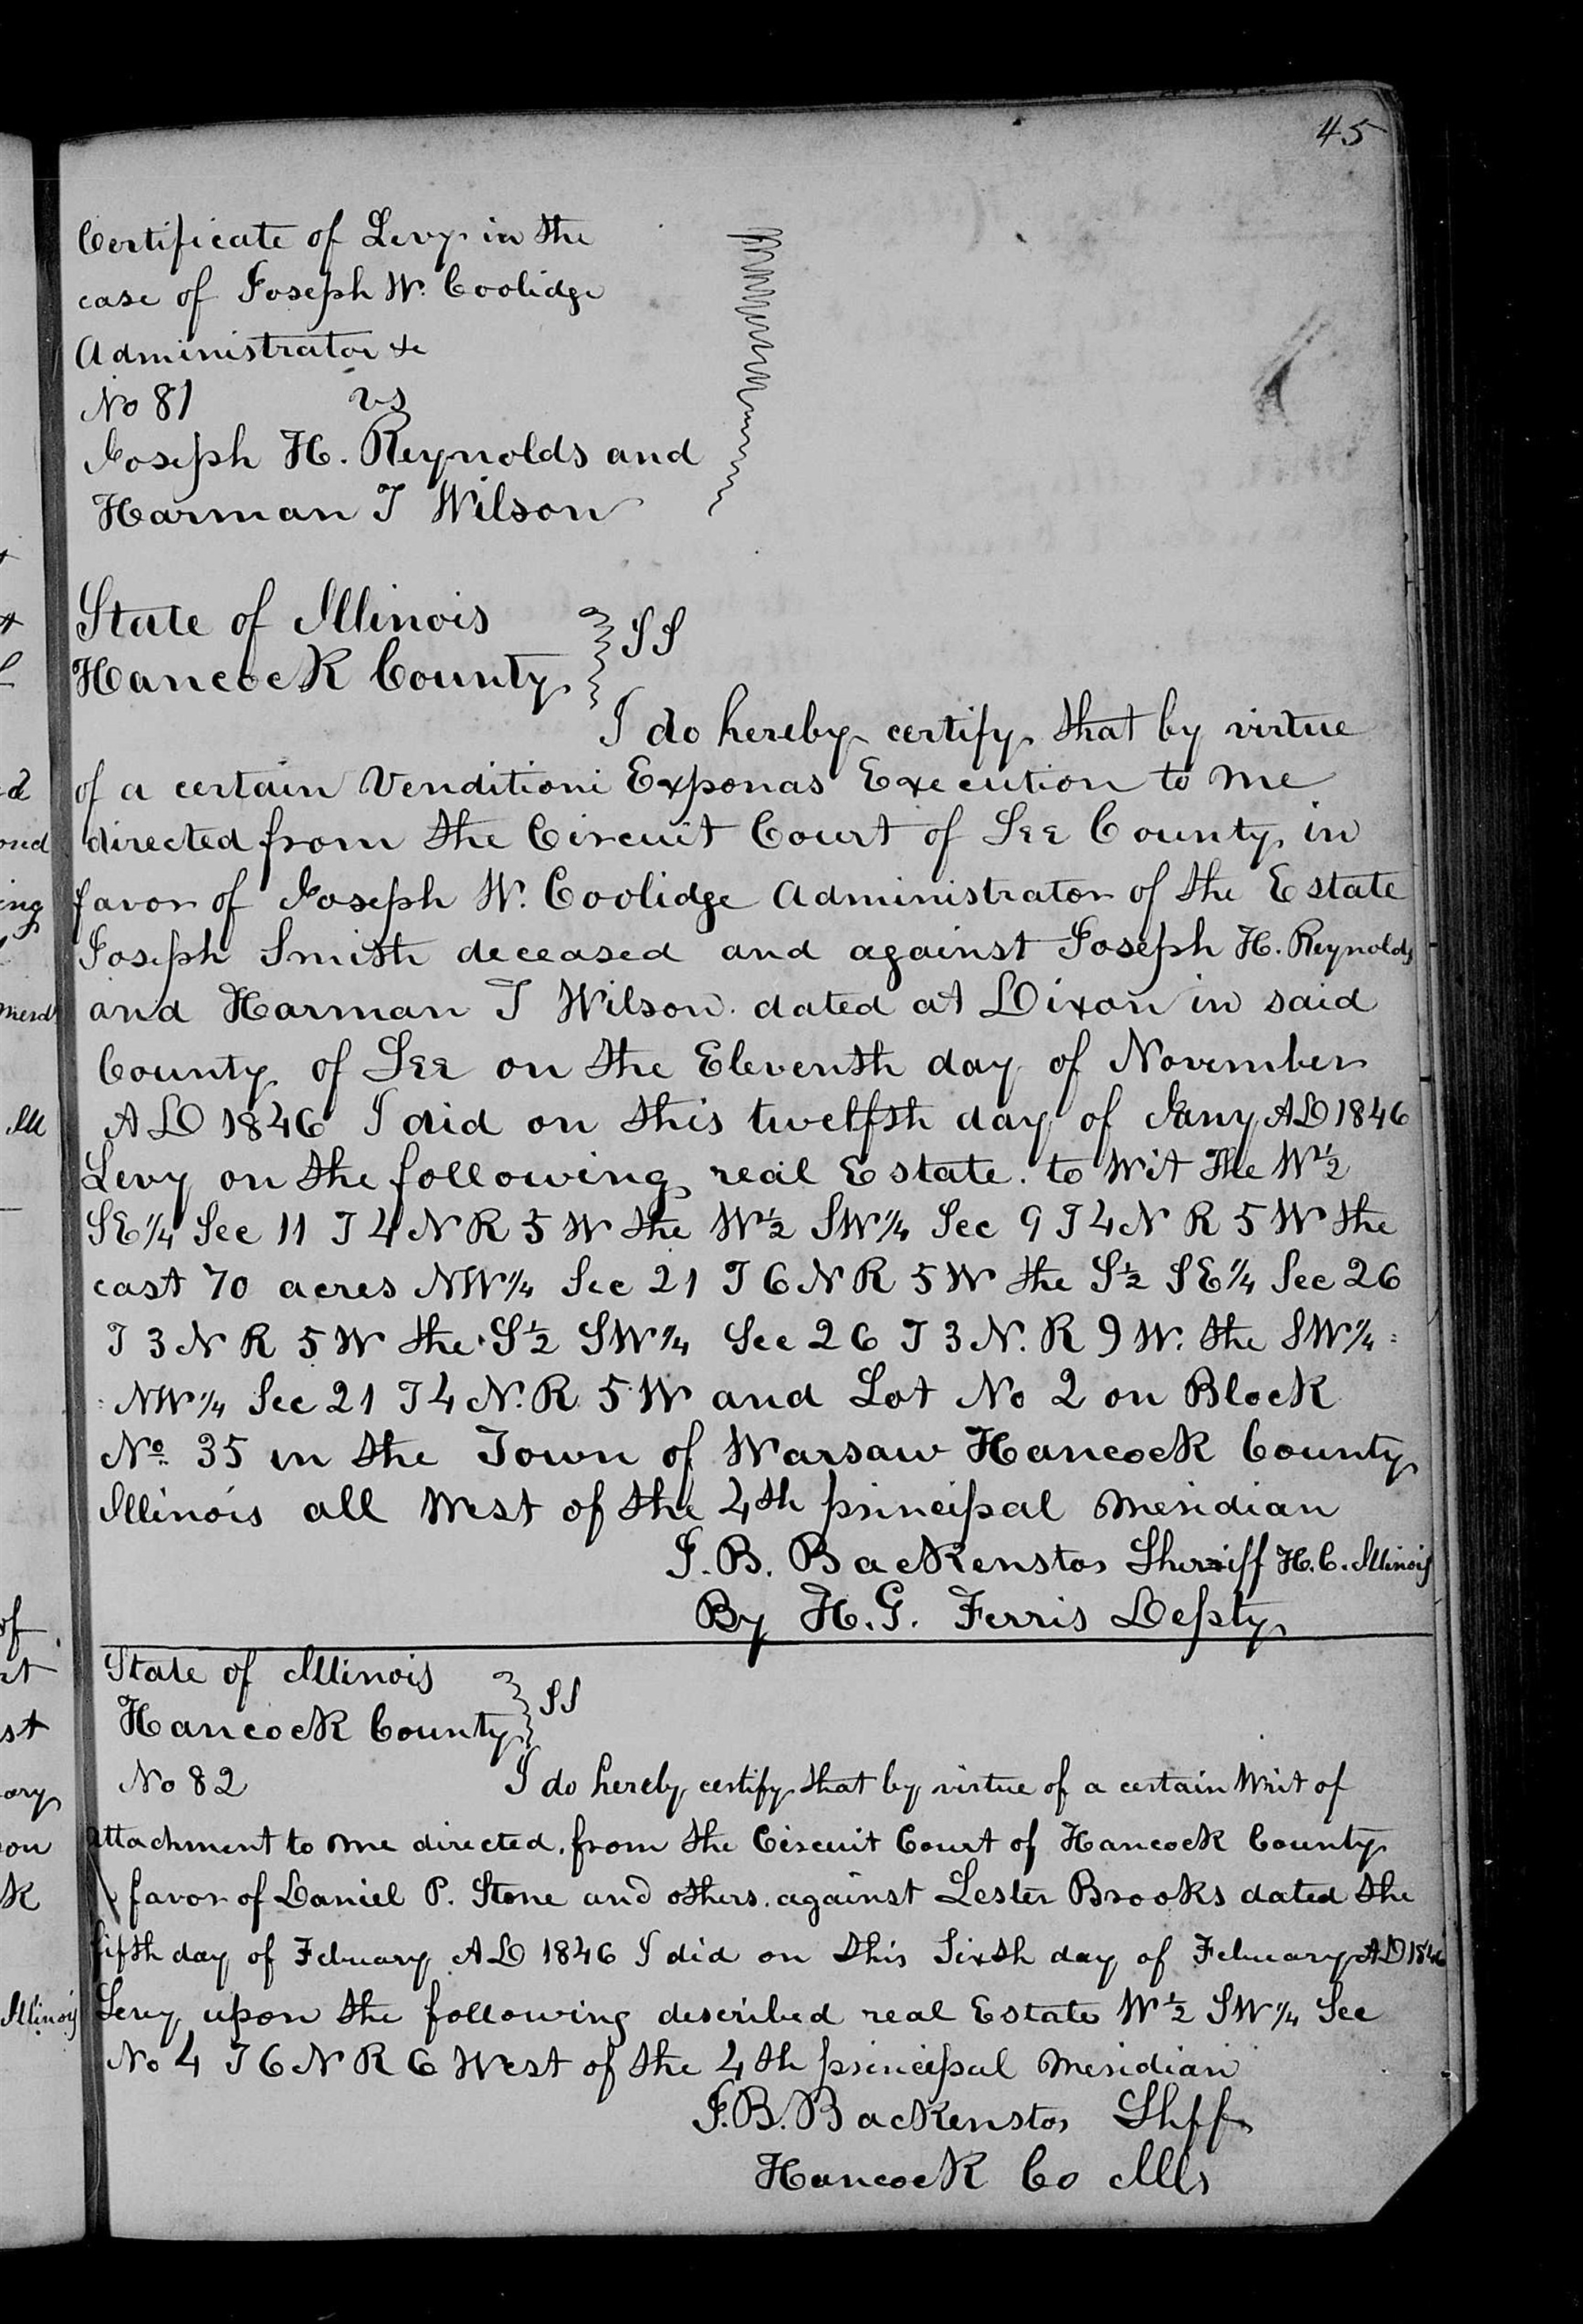 45
Certificate of Levy in the
case of Joseph W. Coolidge
Administrator &c
No 81 vs
Joseph H. Reynolds and
Harman T Wilson
State of Illinois
Hancock County } SS
I do hereby certify that by virtue
of a certain Venditioni Exponas Execution to me
directed from the Circuit Court of Lee County in
favor of Joseph W. Coolidge Administrator of the Estate
Joseph Smith deceased and against Joseph H. Reynolds
and Harman T Wilson. dated at Dixon in said
County of Lee on the Eleventh day of November
AD 1846 I did on this twelfth day of Jany AD 1846
Levy on the following real Estate. to Wit The W½
SE¼ Sec 11 T 4 N R 5 W the W½ SW¼ Sec 9 T 4 N R 5 W the
east 70 acres NW¼ Sec 21 T 6 N R 5 W the S½ SE¼ Sec 26
T 3 N R 5 W the S½ SW¼ Sec 26 T 3 N. R 9 W. the SW¼
NW¼ Sec 21 T 4 N. R 5 W and Lot No 2 on Block
No. 35 in the Town of Warsaw Hancock County
Illinois all West of the 4th principal Meridian
J. B. Backenstos Sheriff H. C. Illinois
By H. G. Ferris Depty
State of Illinois
Hancock County } SS
No 82 I do hereby certify that by virtue of a certain Writ of
attachment to me directed. from the Circuit Court of Hancock County
favor of Daniel P. Stone and others. against Lester Brooks dated the
fifth day of Febuary AD 1846 I did on this Sixth day of Febuary AD 1846
Levy upon the following described real Estate W½ SW¼ Sec
No 4 T 6 N R 6 West of the 4th principal Meridian
J. B. Backenstos Shff
Hancock Co Ills